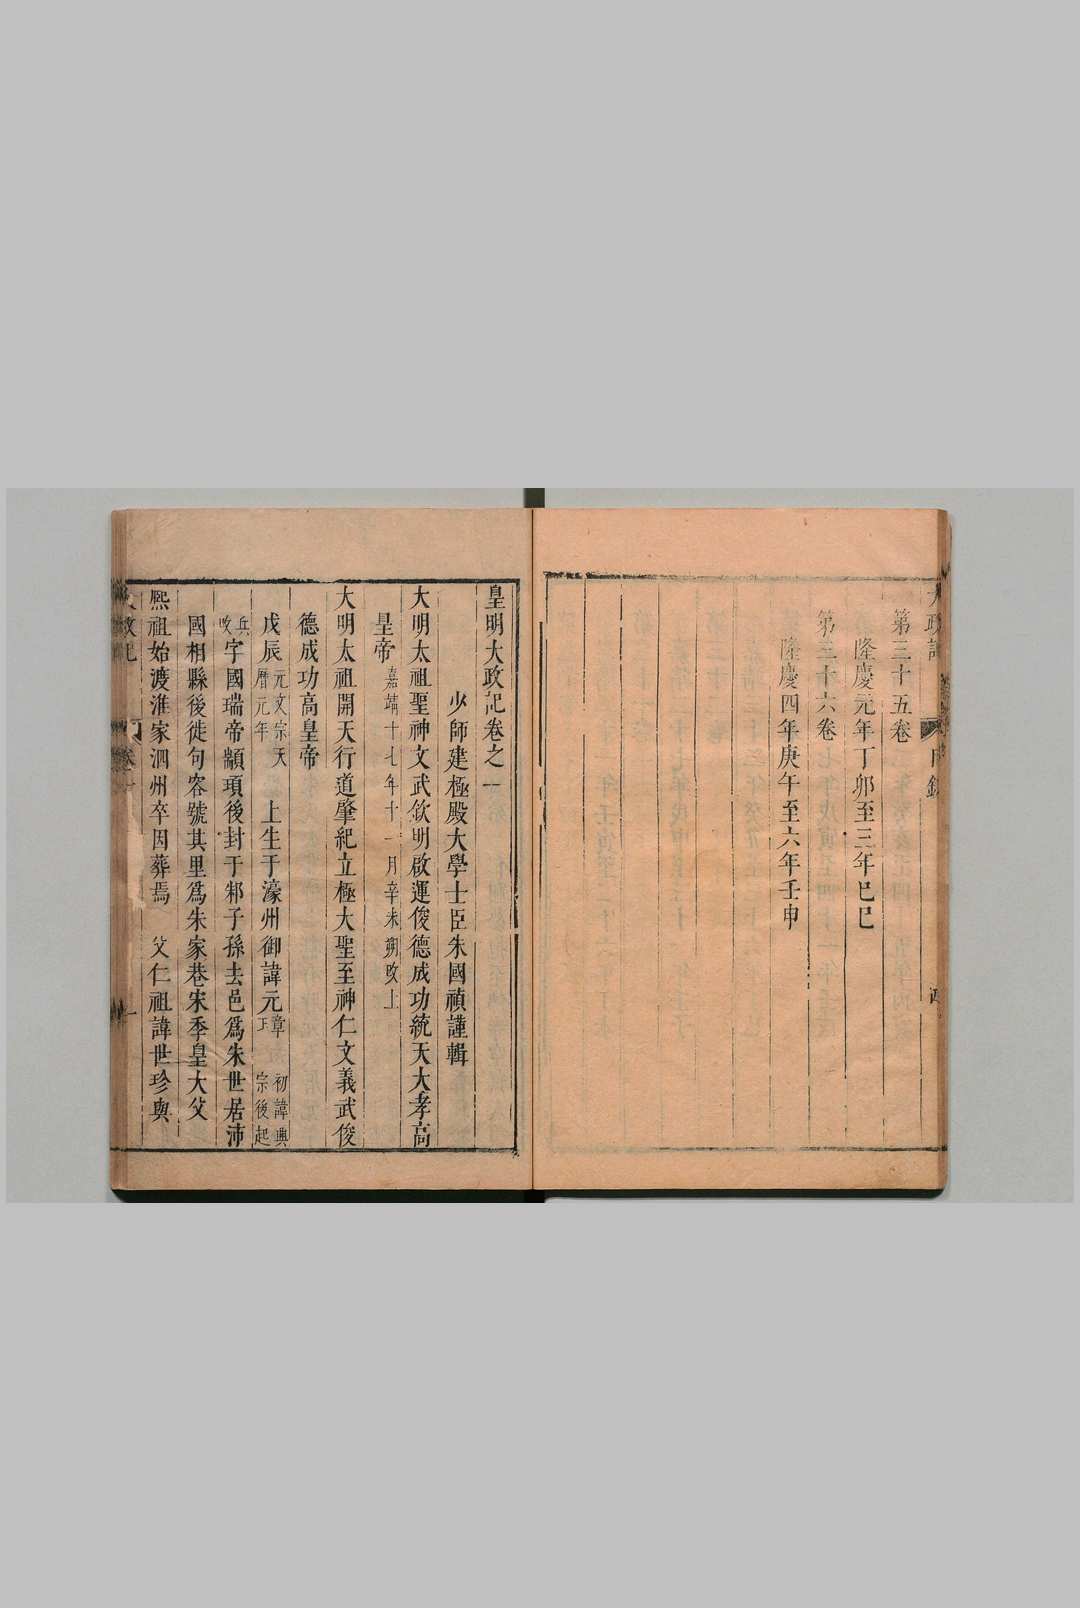 第三十五卷
隆慶元年丁卯至三年己巳
第三十六卷
隆慶四年庚午至六年壬申
皇明大政記卷之一
少師建極殿大學士臣朱國禎謹輯
大明太祖聖神文武欽明啟運俊德成功統天大孝高
皇帝嘉靖十七年十一月辛未朔改上
大明太祖開天行道肇紀立極大聖至神仁文義武俊
德成功高皇帝
戊辰元文宗天曆元年 上生于濠州御諱元章 初諱興宗後起
兵改字國瑞帝顓頊後封于邾子孫去邑爲朱世居沛
國相縣後徙句容號其里爲朱家巷宋季皇大父
熈祖始渡淮家泗州卒因葬焉 父仁祖諱世珍與